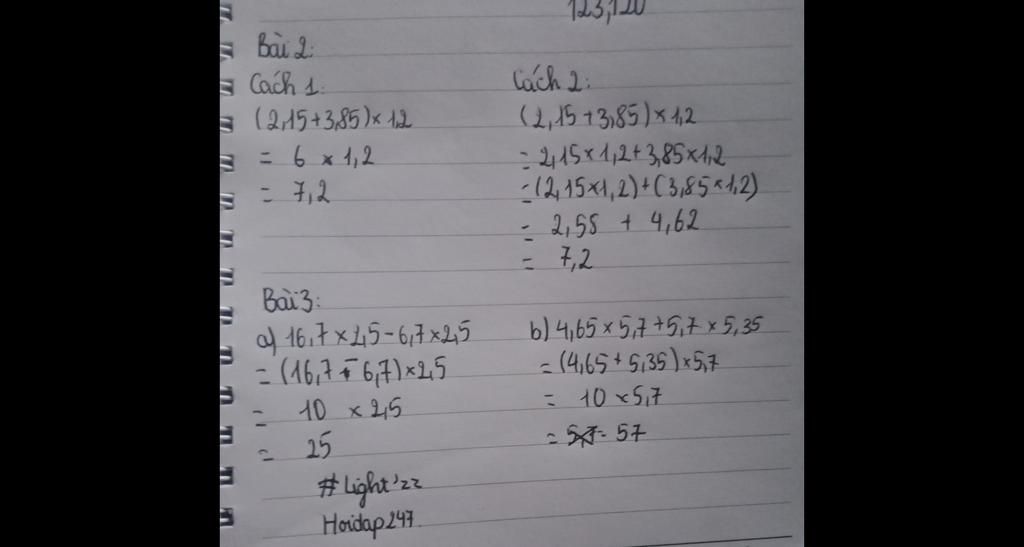 123,120
Bài 2:
Cách 1:
(2,15+3,85)×1,2
= 6 × 1,2
= 7,2
Cách 2:
(2,15+3,85)×1,2
= 2,15×1,2+3,85×1,2
= (2,15×1,2)+(3,85×1,2)
= 2,58 + 4,62
= 7,2
Bài 3:
a) 16,7×2,5-6,7×2,5
= (16,7-6,7)×2,5
= 10 × 2,5
= 25
b) 4,65×5,7+5,7×5,35
= (4,65+5,35)×5,7
= 10 ×5,7
= 57
#Light'zz
Hoidap247